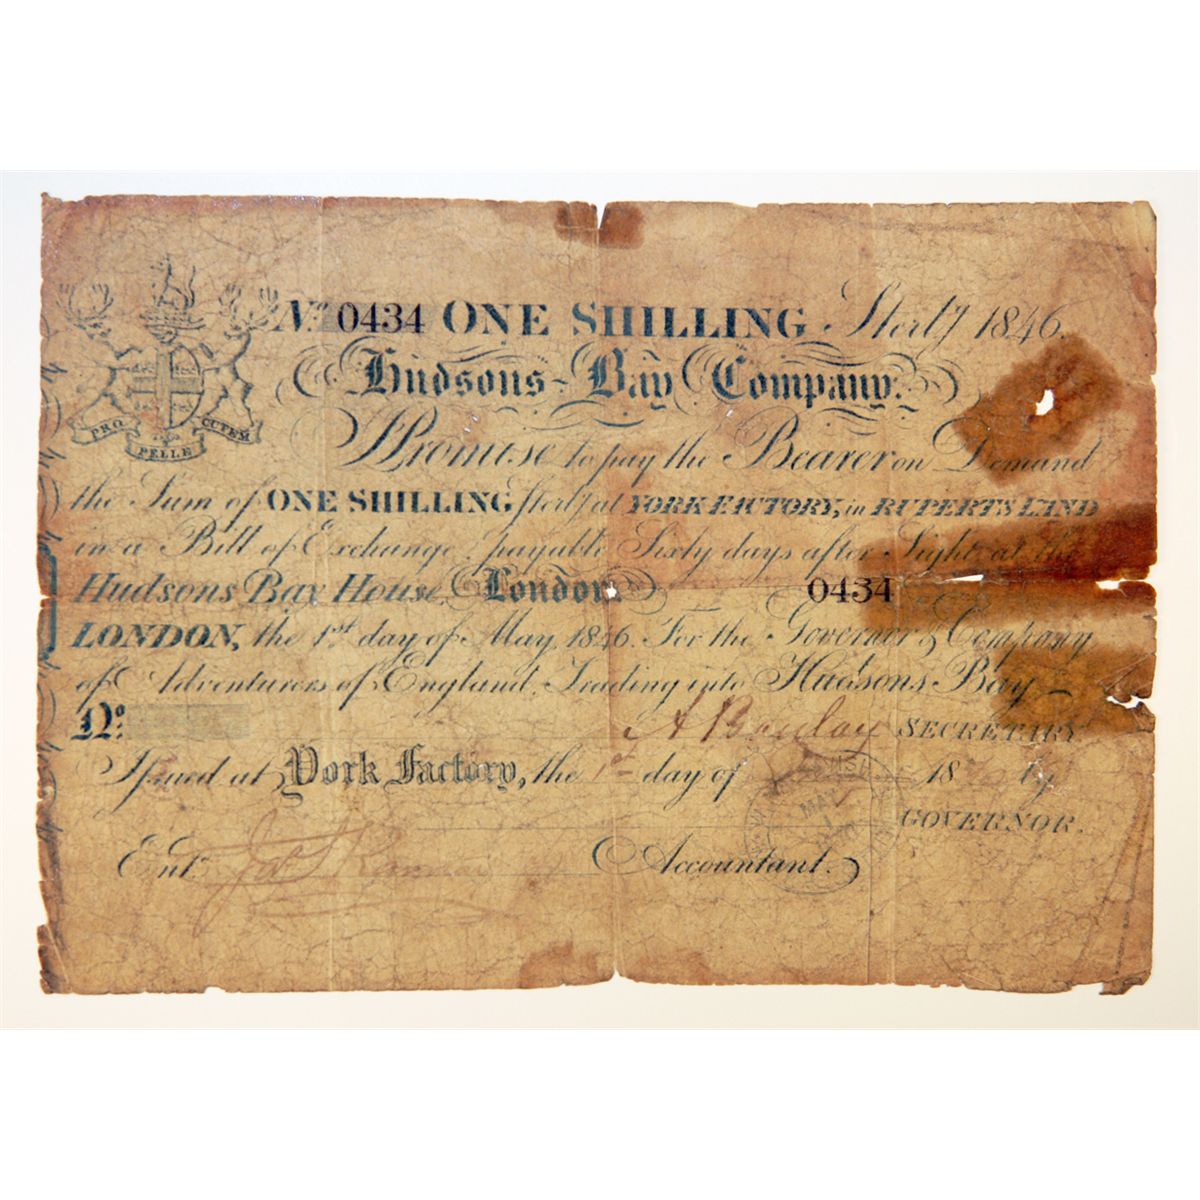 No 0434 ONE SHILLING Sterlg 1846.
Hudsons Bay Company.
PRO PELLE CUTEM
I Promise to pay the Bearer on Demand
the Sum of ONE SHILLING Sterlg at YORK FACTORY, in RUPERT'S LAND
in a Bill of Exchange payable Sixty days after Sight at the
Hudsons Bay House, London. 0434
LONDON, the 1st day of May 1846. For the Governor & Company
of Adventurers of England, Trading into Hudsons Bay
No. A Barclay SECRETARY
Issued at York Factory, the 1st day of 18 by
MAY
GOVERNOR.
Ent. Accountant.